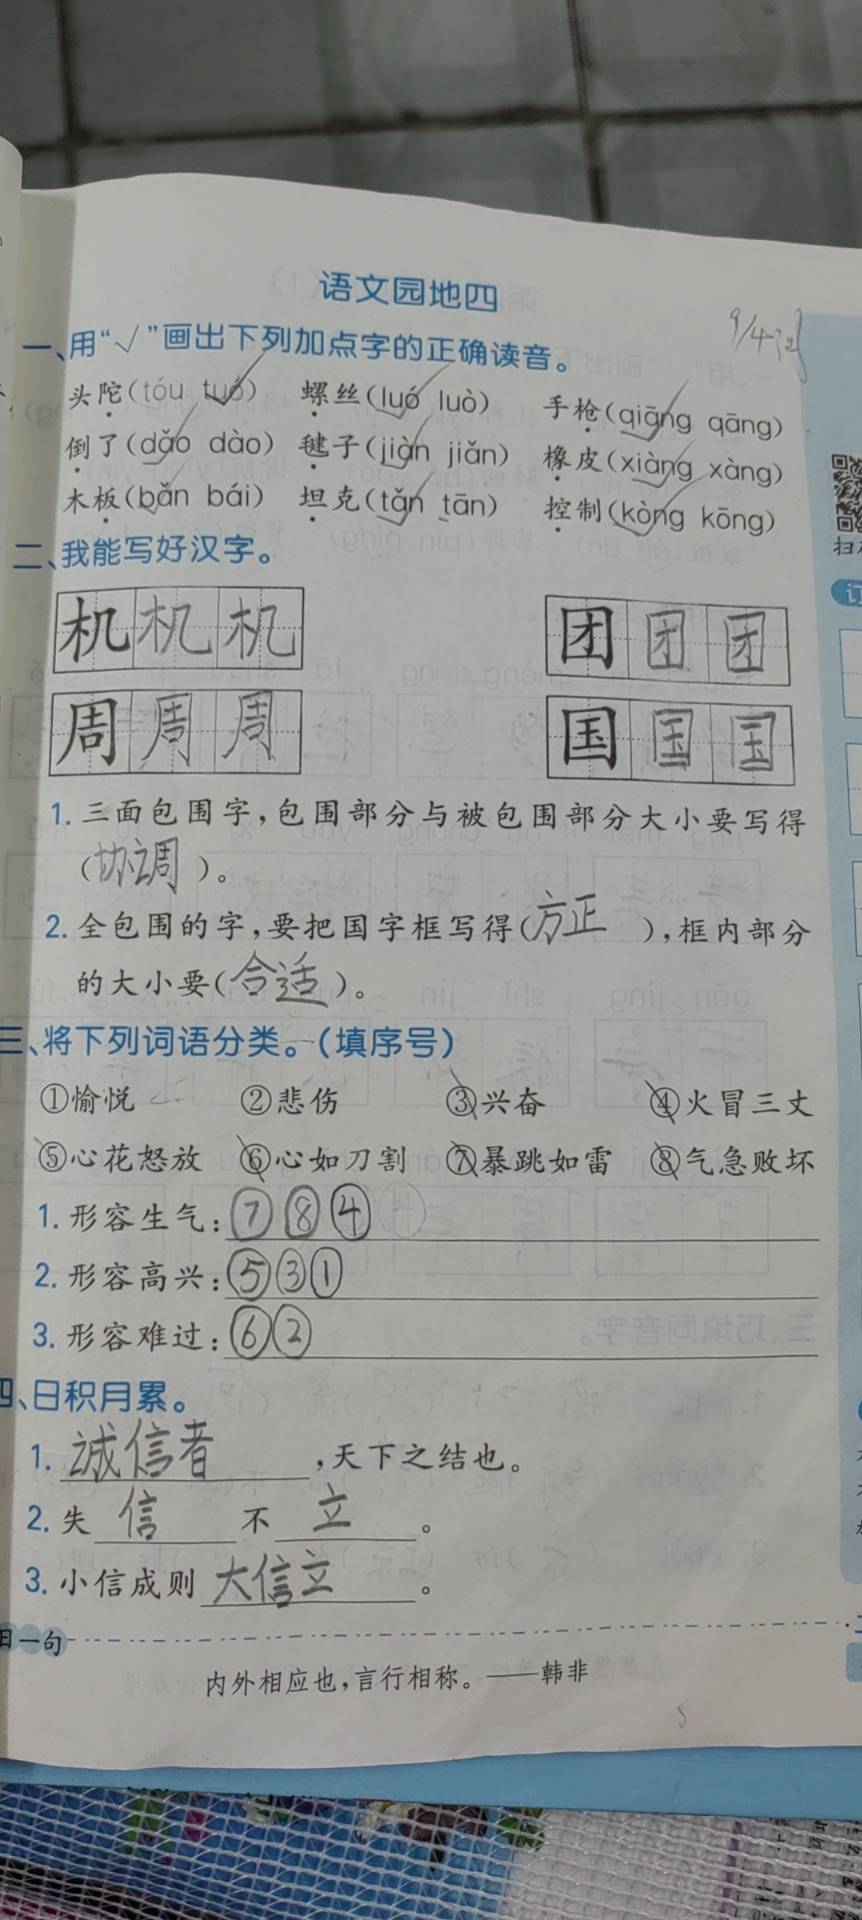 语文园地四
一、用“√”画出下列加点字的正确读音。
头陀(tóu tuó) 螺丝(luó luò) 手枪(qiāng qāng)
倒了(dǎo dào) 毽子(jiàn jiǎn) 橡皮(xiàng xàng)
木板(bǎn bái) 坦克(tǎn tān) 控制(kòng kōng)
二、我能写好汉字。
机 机 机 团 团 团
周 周 周 国 国 国
1. 三面包围字,包围部分与被包围部分大小要写得
(协调)。
2. 全包围的字,要把国字框写得(方正),框内部分
的大小要(合适)。
三、将下列词语分类。(填序号)
①愉悦 ②悲伤 ③兴奋 ④火冒三丈
⑤心花怒放 ⑥心如刀割 ⑦暴跳如雷 ⑧气急败坏
1. 形容生气:⑦⑧④
2. 形容高兴:⑤③①
3. 形容难过:⑥②
四、日积月累。
1. 诚信者,天下之结也。
2. 失信不立。
3. 小信成则大信立。
一句
内外相应也,言行相称。——韩非